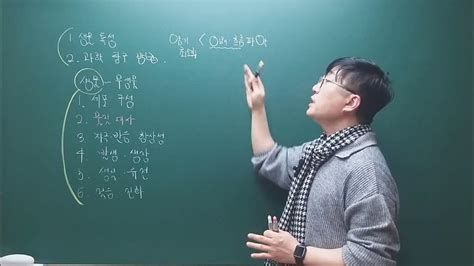 1. 생물 특성
2. 과학 탐구 방법
암기 < 내용 흐름 파악
최소화
생물 - 무생물
1. 세포 구성
2. 물질 대사
3. 자극 반응 항상성
4. 발생 생장
5. 생식 유전
6. 적응 진화